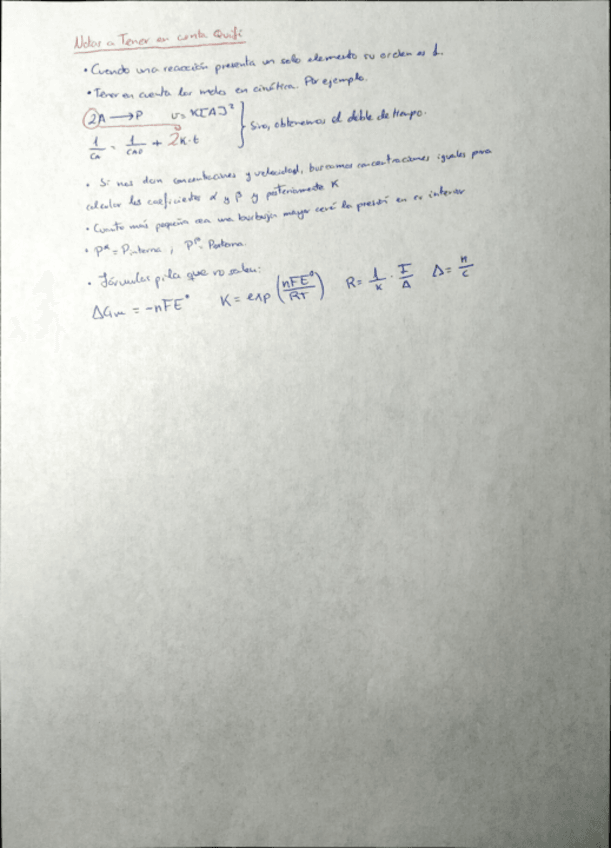 Notas a Tener en cuenta Quifi
• Cuando una reacción presenta un solo elemento su orden es 1.
• Tener en cuenta los moles en cinética. Por ejemplo.
2A → P v = K[A]²
1/CA = 1/CAO + 2K·t } Sino, obtenemos el doble de tiempo.
• Si nos dan concentraciones y velocidad, buscamos concentraciones iguales para
calcular los coeficientes α y β y posteriormente K
• Cuanto más pequeña sea una burbuja mayor será la presión en su interior
• Pα = Pinterna, Pβ = Pexterna.
• Fórmulas pila que no salen:
ΔGm = -nFE° K = exp (nFE°/RT) R = 1/K · I/A Λ = K/C